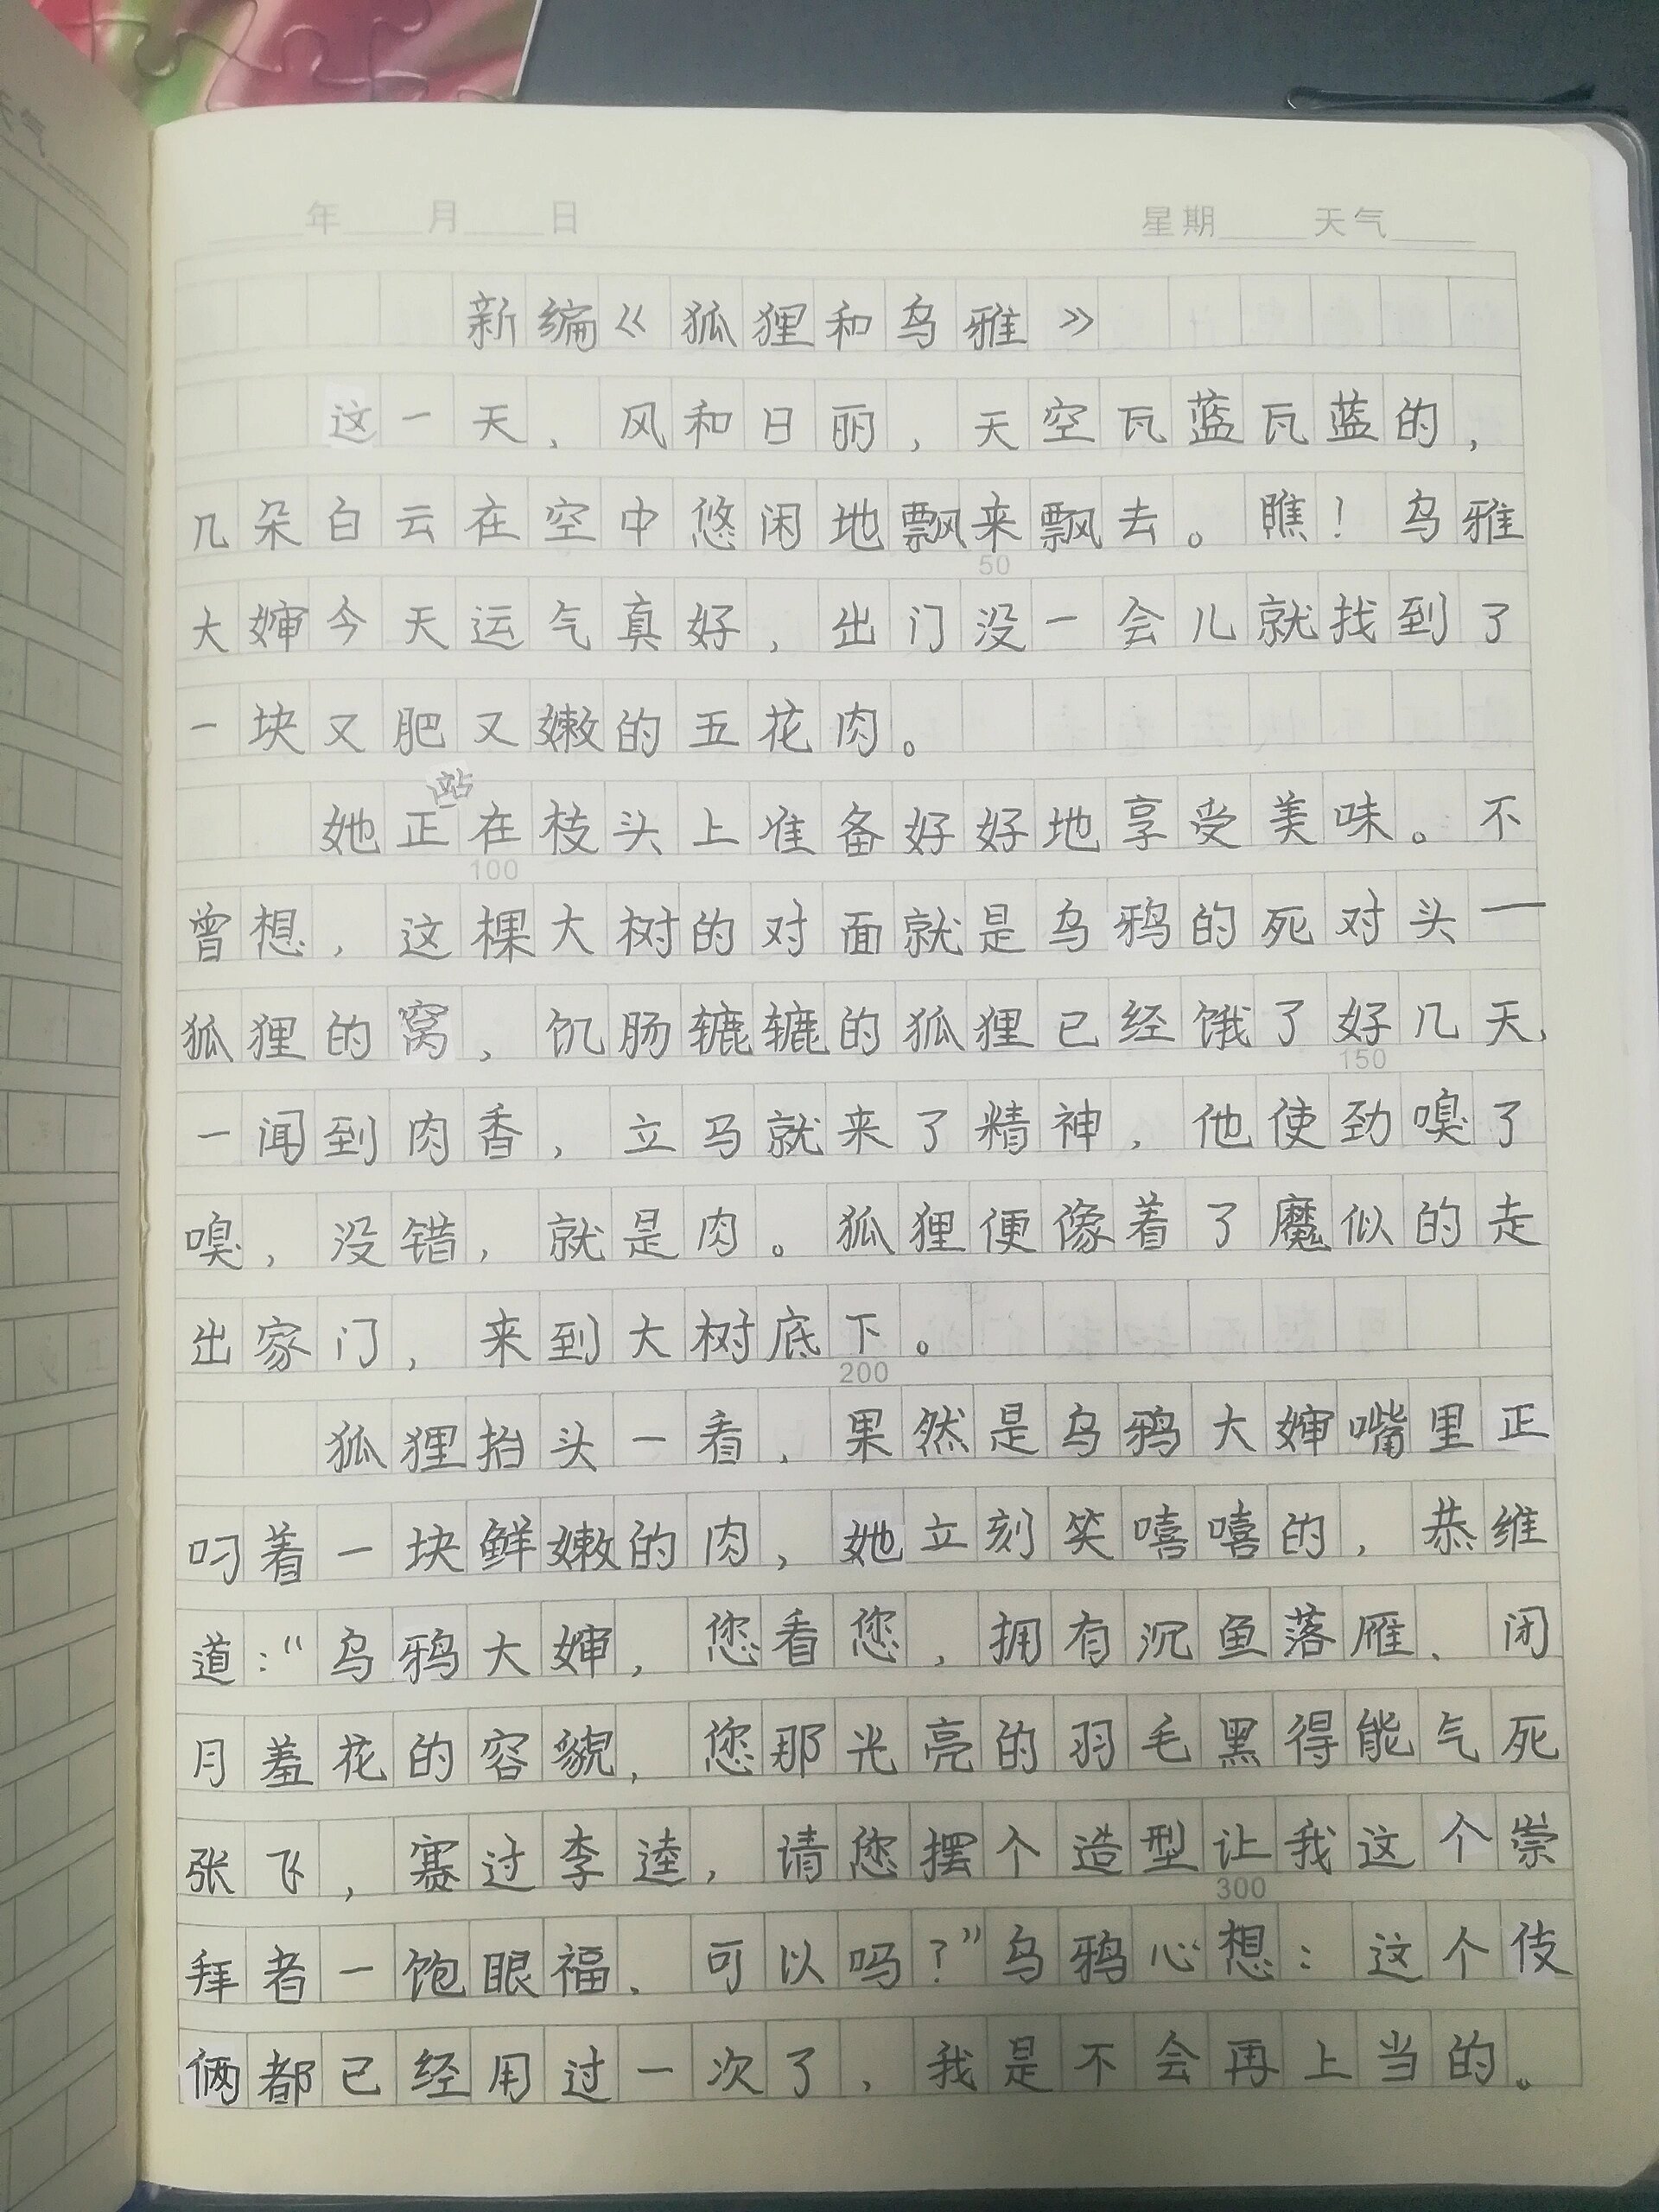 年 月 日 星期 天气
新编《狐狸和乌雅》
这一天，风和日丽，天空瓦蓝瓦蓝的，
几朵白云在空中悠闲地飘来飘去。瞧！乌雅
50
大婶今天运气真好，出门没一会儿就找到了
一块又肥又嫩的五花肉。
她正站在枝头上准备好好地享受美味。不
100
曾想，这棵大树的对面就是乌鸦的死对头一
狐狸的窝，饥肠辘辘的狐狸已经饿了好几天，
150
一闻到肉香，立马就来了精神，他使劲嗅了
嗅，没错，就是肉。狐狸便像着了魔似的走
出家门，来到大树底下。
200
狐狸抬头一看，果然是乌鸦大婶嘴里正
叼着一块鲜嫩的肉，她立刻笑嘻嘻的，恭维
道：“乌鸦大婶，您看您，拥有沉鱼落雁、闭
月羞花的容貌，您那光亮的羽毛黑得能气死
张飞，赛过李逵，请您摆个造型让我这个崇
300
拜者一饱眼福，可以吗？”乌鸦心想：这个伎
俩都已经用过一次了，我是不会再上当的。